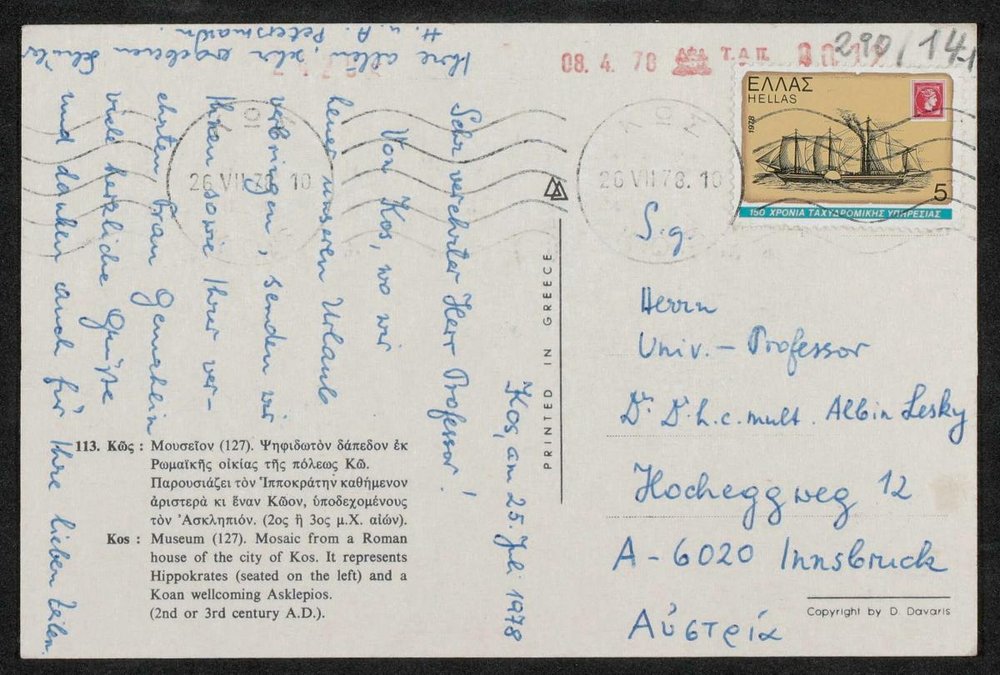 290/14-1
08. 4. 78 Τ.Α.Π.
ΕΛΛΑΣ
HELLAS
1978
5
150 ΧΡΟΝΙΑ ΤΑΧΥΔΡΟΜΙΚΗΣ ΥΠΗΡΕΣΙΑΣ
26 VII 78. 10
26 VII 78. 10
Kos, am 25. Juli 1978
Sehr verehrter Herr Professor!
Von Kos, wo wir
heuer unseren Urlaub
verbringen, senden wir
Ihnen sowie Ihrer ver-
ehrten Frau Gemahlin
viele herzliche Grüße
und danken auch für Ihre lieben Zeilen.
Ihre allzeit sehr ergebenen Schüler
H. u. A. Petersmann
113. Κῶς : Μουσεῖον (127). Ψηφιδωτὸν δάπεδον ἐκ
Ρωμαϊκῆς οἰκίας τῆς πόλεως Κῶ.
Παρουσιάζει τὸν Ἱπποκράτην καθήμενον
ἀριστερὰ κι ἕναν Κῶον, ὑποδεχομένους
τὸν Ἀσκληπιόν. (2ος ἢ 3ος μ.Χ. αἰών).
Kos : Museum (127). Mosaic from a Roman
house of the city of Kos. It represents
Hippokrates (seated on the left) and a
Koan wellcoming Asklepios.
(2nd or 3rd century A.D.).
PRINTED IN GREECE
S.g.
Herrn
Univ. - Professor
Dr. D.h.c. mult. Albin Lesky
Hocheggweg 12
A-6020 Innsbruck
Αὐστρία
Copyright by D. Davaris